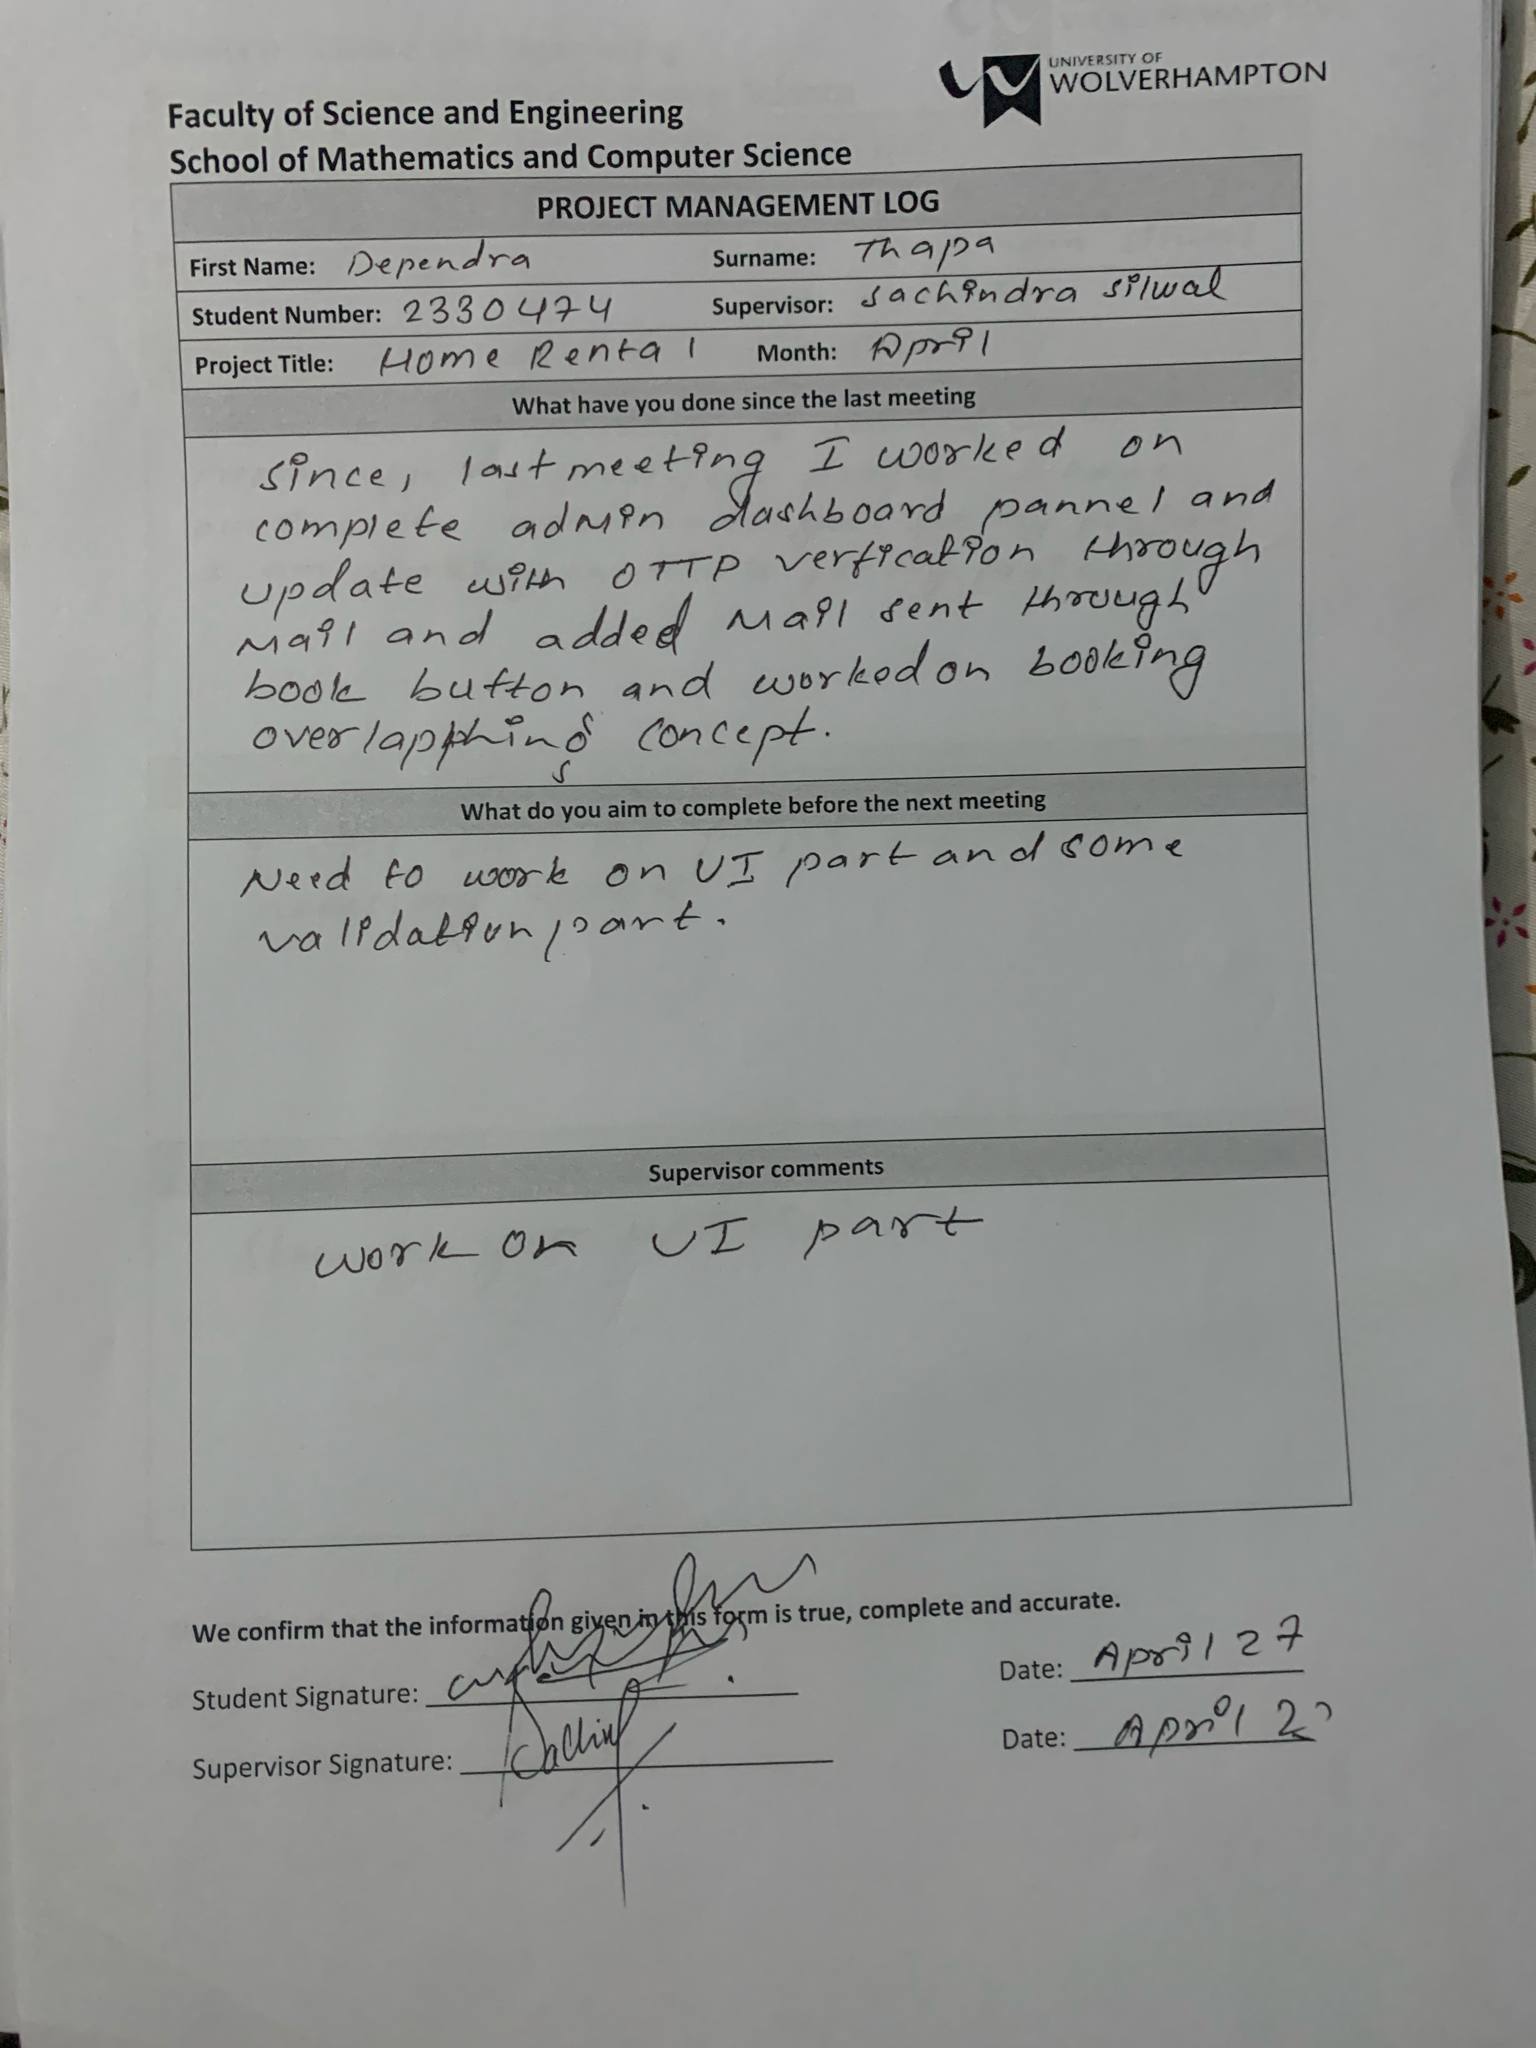 UNIVERSITY OF
WOLVERHAMPTON
Faculty of Science and Engineering
School of Mathematics and Computer Science
PROJECT MANAGEMENT LOG
First Name: Dependra Surname: Thapa
Student Number: 2330474 Supervisor: Sachindra Silwal
Project Title: Home Rental Month: April
What have you done since the last meeting
since, last meeting I worked on
complete admin dashboard pannel and
update with OTTP verfication through
Mail and added Mail sent through
book button and worked on booking
overlapphing concept.
What do you aim to complete before the next meeting
Need to work on UI part and some
validation part.
Supervisor comments
work on UI part
We confirm that the information given in this form is true, complete and accurate.
Student Signature: Date: April 27
Supervisor Signature: Date: April